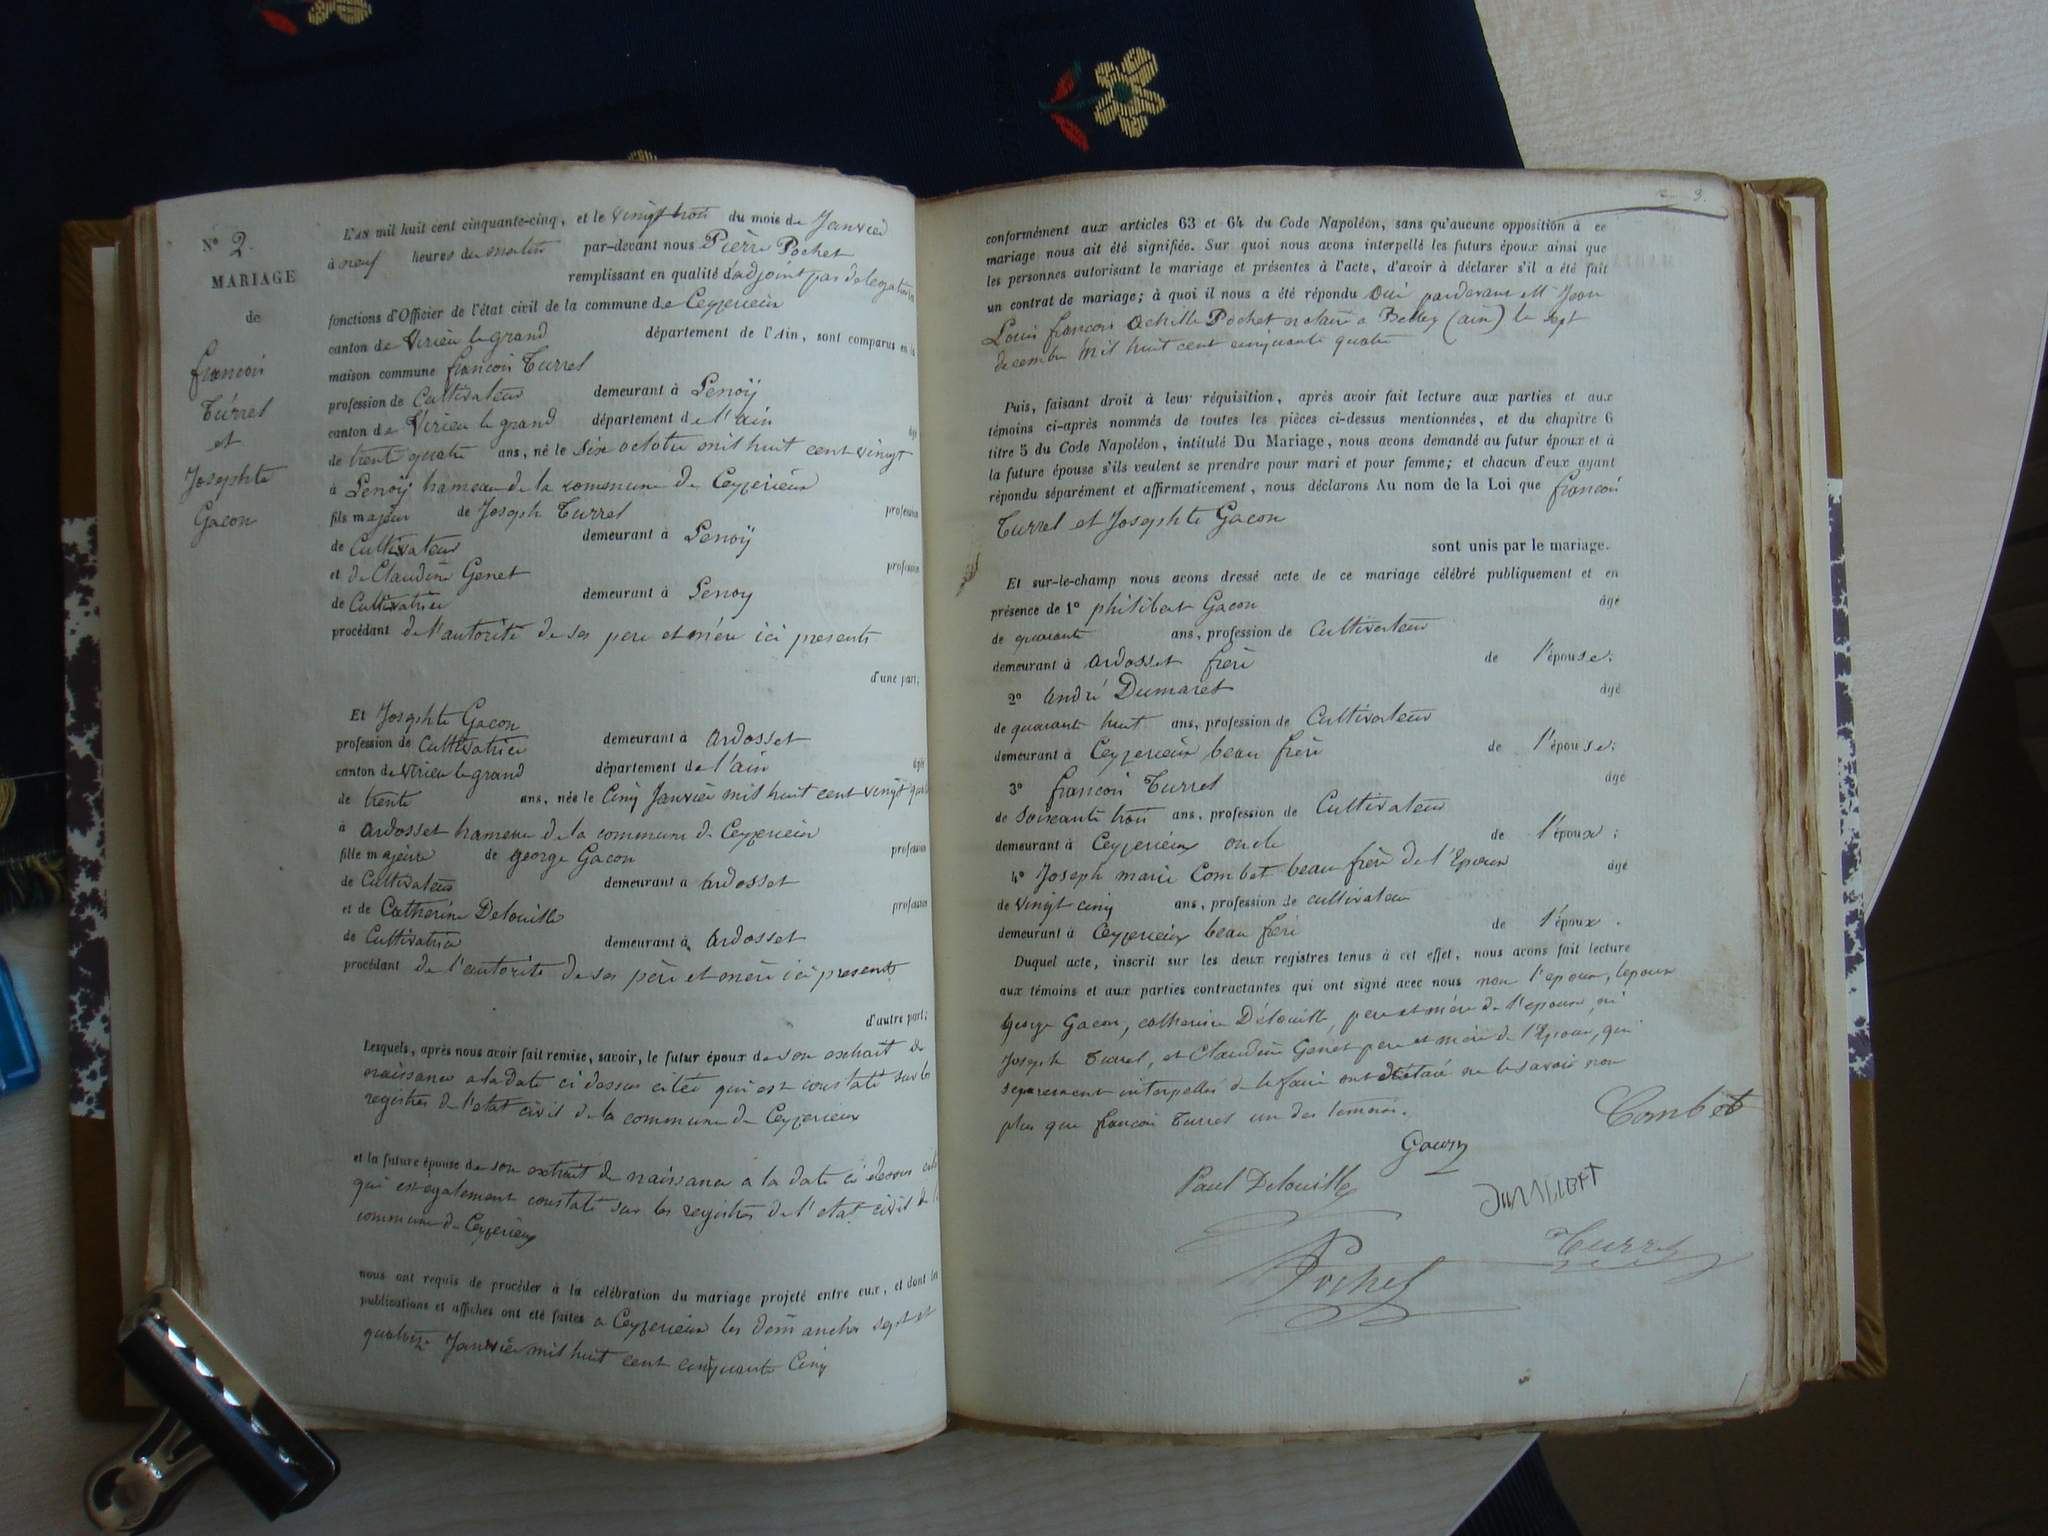 N° 2.
MARIAGE
de
françois
Turrel
et
Josephte
Gacon
L'AN mil huit cent cinquante-cinq, et le vingt trois du mois de Janvier
à neuf heures du matin par-devant nous Pierre Pochet
remplissant en qualité d'adjoint par délégation
fonctions d'Officier de l'état civil de la commune de Ceyzerieux
canton de Virieu le grand département de l'Ain, sont comparus en la
maison commune françois Turrel
profession de Cultivateur demeurant à Senoÿ
canton de Virieu le grand département de l'ain âgé
de trente quatre ans, né le Six octobre mil huit cent vingt
à Senoÿ hameau de la commune de Ceyzerieux
fils majeur de Joseph Turrel profession
de Cultivateur demeurant à Senoÿ
et de Claudine Genet profession
de Cultivatrice demeurant à Senoy
procédant de l'autorité de ses pere et mère ici presents
d'une part;
Et Josephte Gacon
profession de Cultivatrice demeurant à ardosset
canton de Virieu le grand département de l'ain âgée
de trente ans, née le Cinq Janvier mil huit cent vingt quatre
à ardosset hameau de la commune de Ceyzerieux
fille majeure de george Gacon profession
de Cultivateur demeurant à ardosset
et de Catherine Delouille profession
de Cultivatrice demeurant à ardosset
procédant de l'autorité de ses père et mère ici presents
d'autre part;
Lesquels, après nous avoir fait remise, savoir, le futur époux de son extrait de
naissance a la date ci dessus citée qui est constaté sur les
registres de l'etat civil de la commune de Ceyzerieux
et la future épouse de son extrait de naissance a la date ci dessus
qui est egalement constaté sur les registres de l'etat civil de la
commune de Ceyzerieux
nous ont requis de procéder à la célébration du mariage projeté entre eux, et dont les
publications et affiches ont été faites a Ceyzerieux les dimanches sept et
quatorze Janvier mil huit cent cinquante Cinq
3.
conformément aux articles 63 et 64 du Code Napoléon, sans qu'aucune opposition à ce
mariage nous ait été signifiée. Sur quoi nous avons interpellé les futurs époux ainsi que
les personnes autorisant le mariage et présentes à l'acte, d'avoir à déclarer s'il a été fait
un contrat de mariage; à quoi il nous a été répondu Oui pardevant Mr Jean
Louis françois Achille Pochet notaire a Belley (ain) le sept
decembre mil huit cent cinquante quatre
Puis, faisant droit à leur réquisition, après avoir fait lecture aux parties et aux
témoins ci-après nommés de toutes les pièces ci-dessus mentionnées, et du chapitre 6
titre 5 du Code Napoléon, intitulé Du Mariage, nous avons demandé au futur époux et à
la future épouse s'ils veulent se prendre pour mari et pour femme; et chacun d'eux ayant
répondu séparément et affirmativement, nous déclarons Au nom de la Loi que françois
Turrel et Josephte Gacon
sont unis par le mariage.
Et sur-le-champ nous avons dressé acte de ce mariage célébré publiquement et en
présence de 1° philibert Gacon âgé
de quarante ans, profession de Cultivateur
demeurant à ardosset frère de l'épouse;
2° andré Dumaret âgé
de quarante huit ans, profession de Cultivateur
demeurant à Ceyzerieux beau frère de l'épouse;
3° françois Turrel âgé
de Soixante trois ans, profession de Cultivateur
demeurant à Ceyzerieux oncle de l'époux;
4° Joseph marie Combet beau frère de l'Epoux âgé
de vingt cinq ans, profession de cultivateur
demeurant à Ceyzerieux beau frère de l'époux.
Duquel acte, inscrit sur les deux registres tenus à cet effet, nous avons fait lecture
aux témoins et aux parties contractantes qui ont signé avec nous non l'epoux, lepouse
george Gacon, catherine Délouille, pere et mère de l'epouse, ni
Joseph Turrel, et Claudine Genet pere et mère de l'Epoux, qui
séparément interpellés de le faire ont déclaré ne le savoir non
plus que françois Turrel un des temoins.
Combet
Gacon
Paul Delouille
Turrel
Pochet